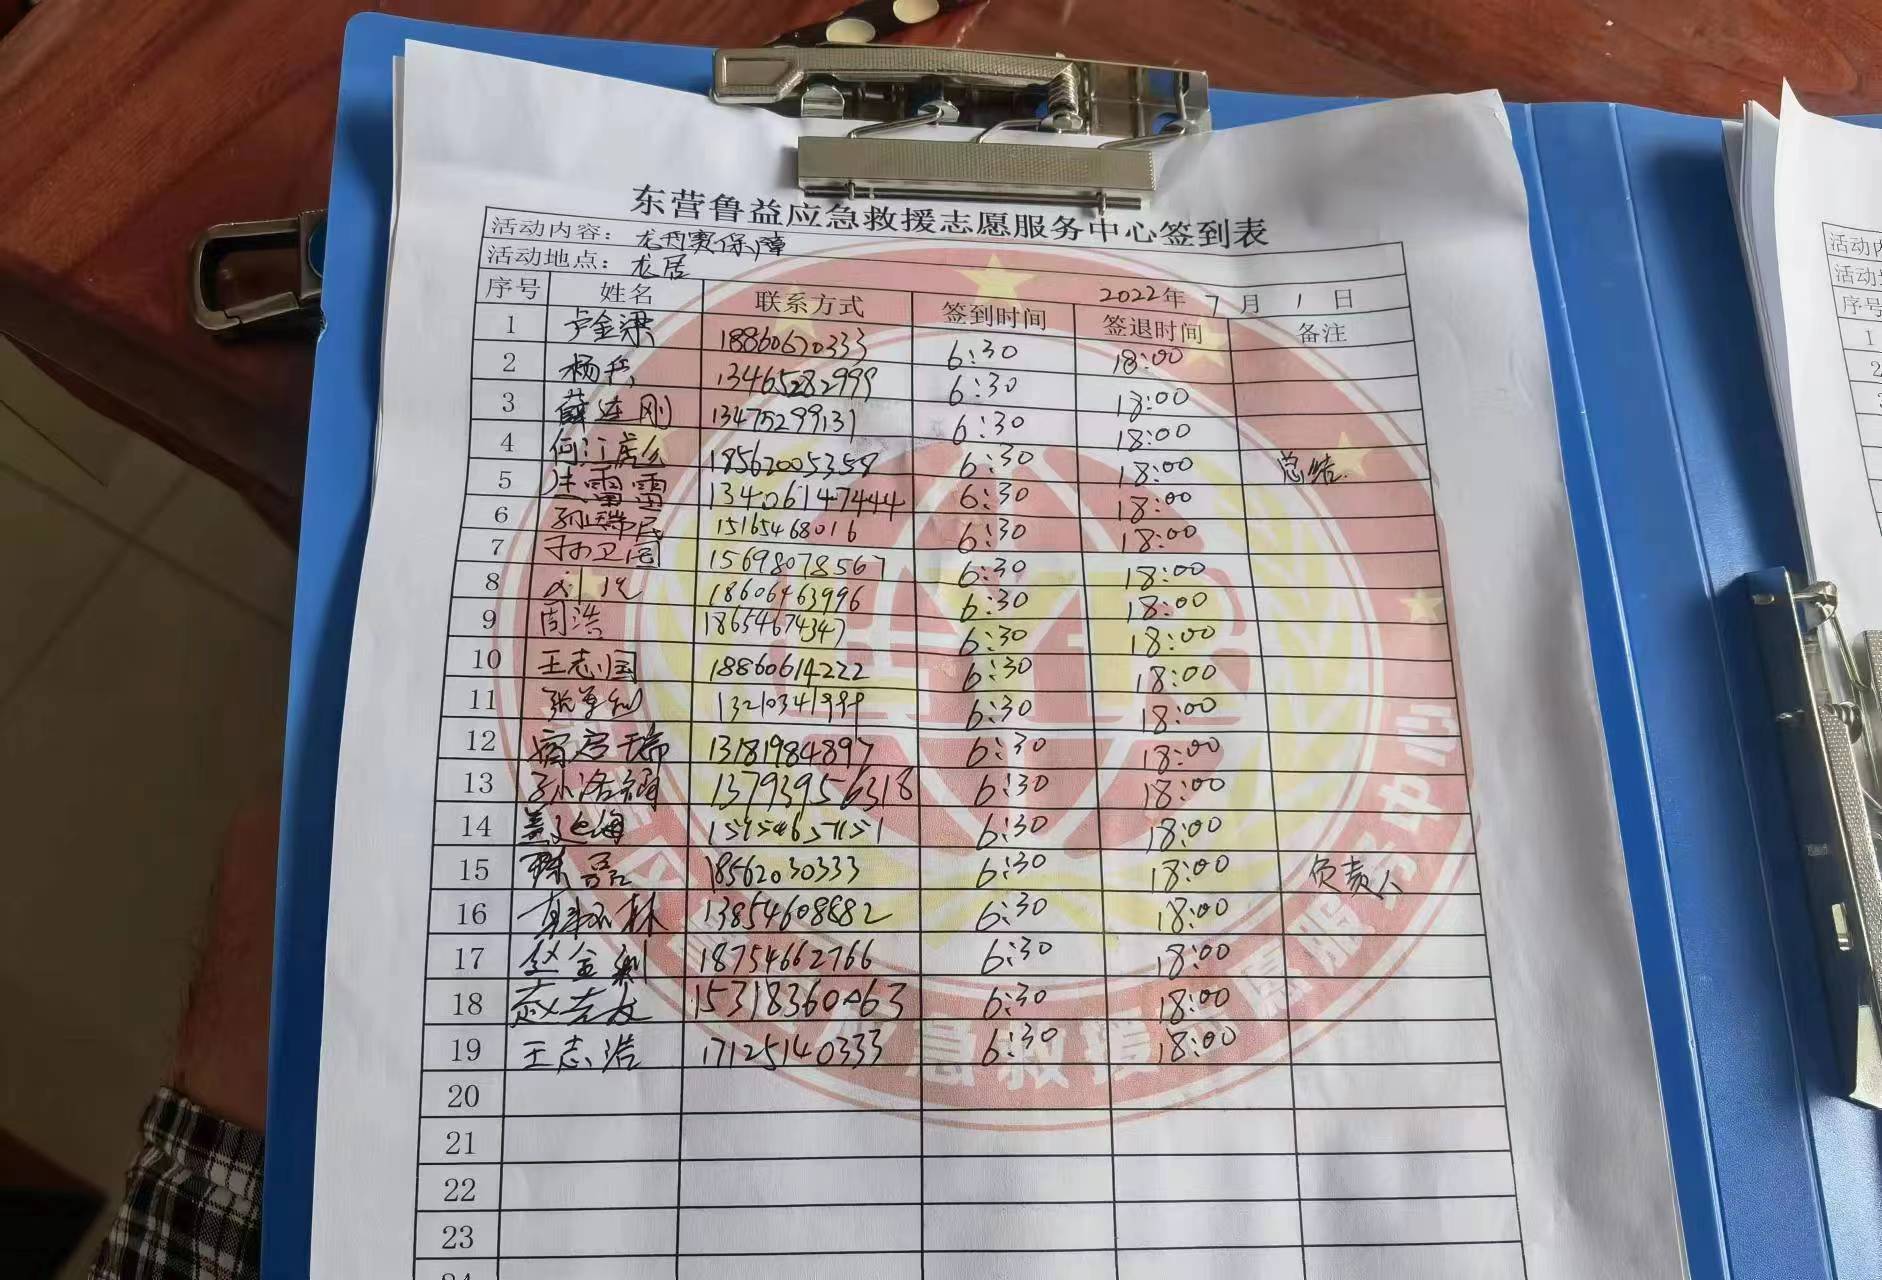 东营鲁益应急救援志愿服务中心签到表
活动内容：龙舟赛保障
活动地点：龙居 2022年 7 月 1 日
序号 姓名 联系方式 签到时间 签退时间 备注
1 卢金梁 18860620333 6:30 18:00
2 杨 13465282999 6:30 18:00
3 薛连刚 13475299131 6:30 18:00
4 18562005358 6:30 18:00 总结
5 雷雷 13406147444 6:30 18:00
6 孙瑞民 15165468016 6:30 18:00
7 孙卫国 15698078567 6:30 18:00
8 18606463996 6:30 18:00
9 周浩 18654674347 6:30 18:00
10 王志国 18860614222 6:30 18:00
11 13210341999 6:30 18:00
12 13181984897 6:30 18:00
13 13793956318 6:30 18:00
14 盖延海 15154657151 6:30 18:00
15 陈磊 18562030333 6:30 18:00 负责人
16 13854608882 6:30 18:00
17 赵金刚 18754662766 6:30 18:00
18 赵吉友 15318360063 6:30 18:00
19 王志浩 17125140333 6:30 18:00
20
21
22
23
活动内
活动地
序号
1
2